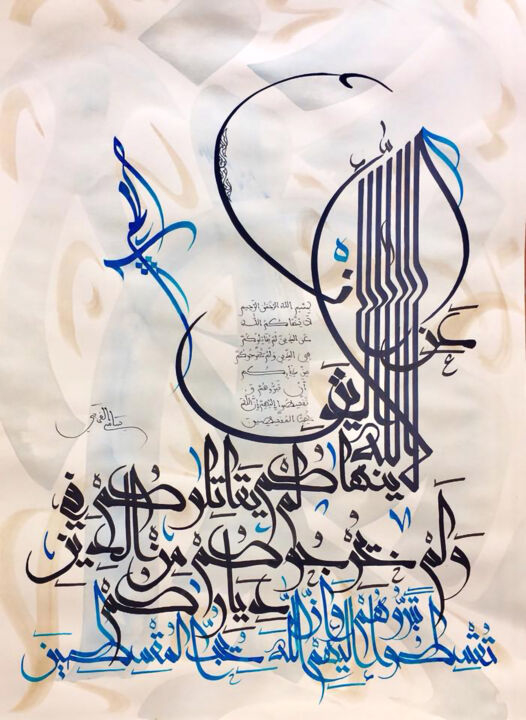 بسم الله الرحمن الرحيم
لا ينهاكم الله
عن الذين لم يقاتلوكم
في الدين ولم يخرجوكم
من دياركم
أن تبروهم و
تقسطوا إليهم إن الله
يحب المقسطين
عن
الذين
الله
لا ينهاكم لم يقاتلوكم في
ولم يخرجوكم من الدين
دياركم
أن تبروهم و إن
تقسطوا إليهم الله يحب المقسطين